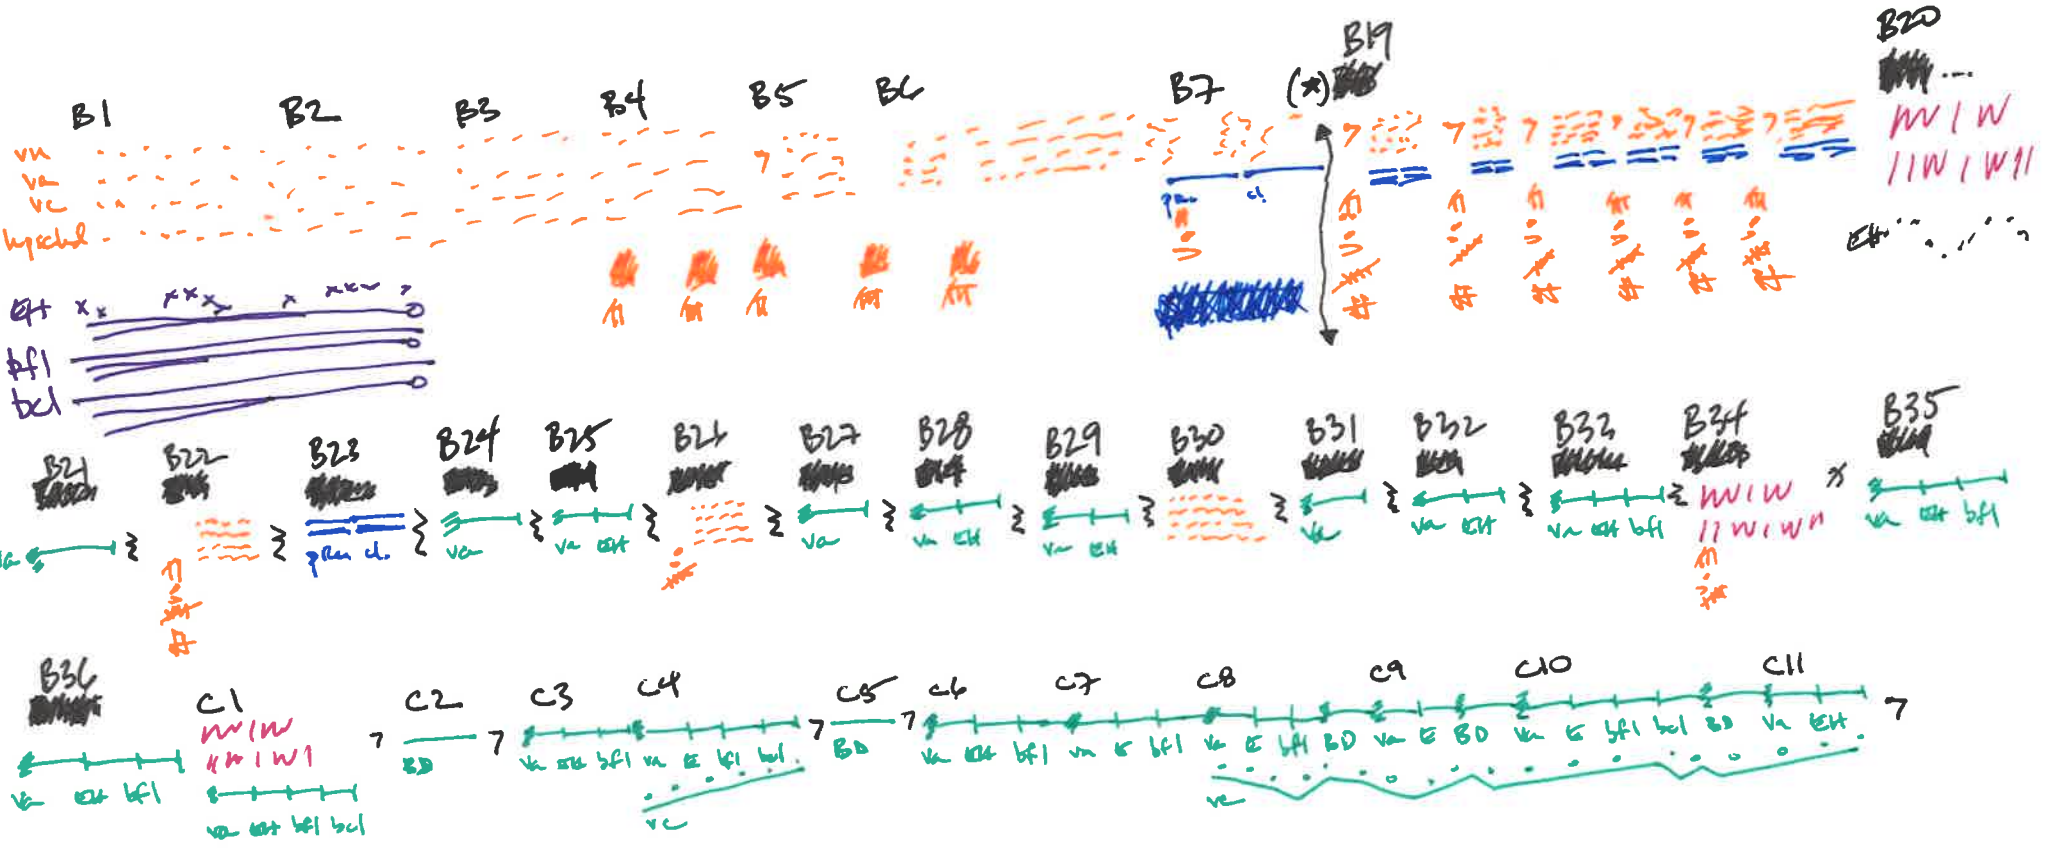 B1 B2 B3 B4 B5 B6 B7 (*) B19 B20
vn
va
vc
hpschd
pno cl.
EH
EH
bfl
bcl
B21 B22 B23 B24 B25 B26 B27 B28 B29 B30 B31 B32 B33 B34 B35
va pno cl. va va EH va va EH va EH va va EH va EH bfl va EH bfl
B36 C1 C2 C3 C4 C5 C6 C7 C8 C9 C10 C11
va EH bfl BD va EH bfl va E bfl bcl BD va EH bfl va E bfl va E bfl BD va E BD va E bfl bcl BD va EH
va EH bfl bcl vc vc